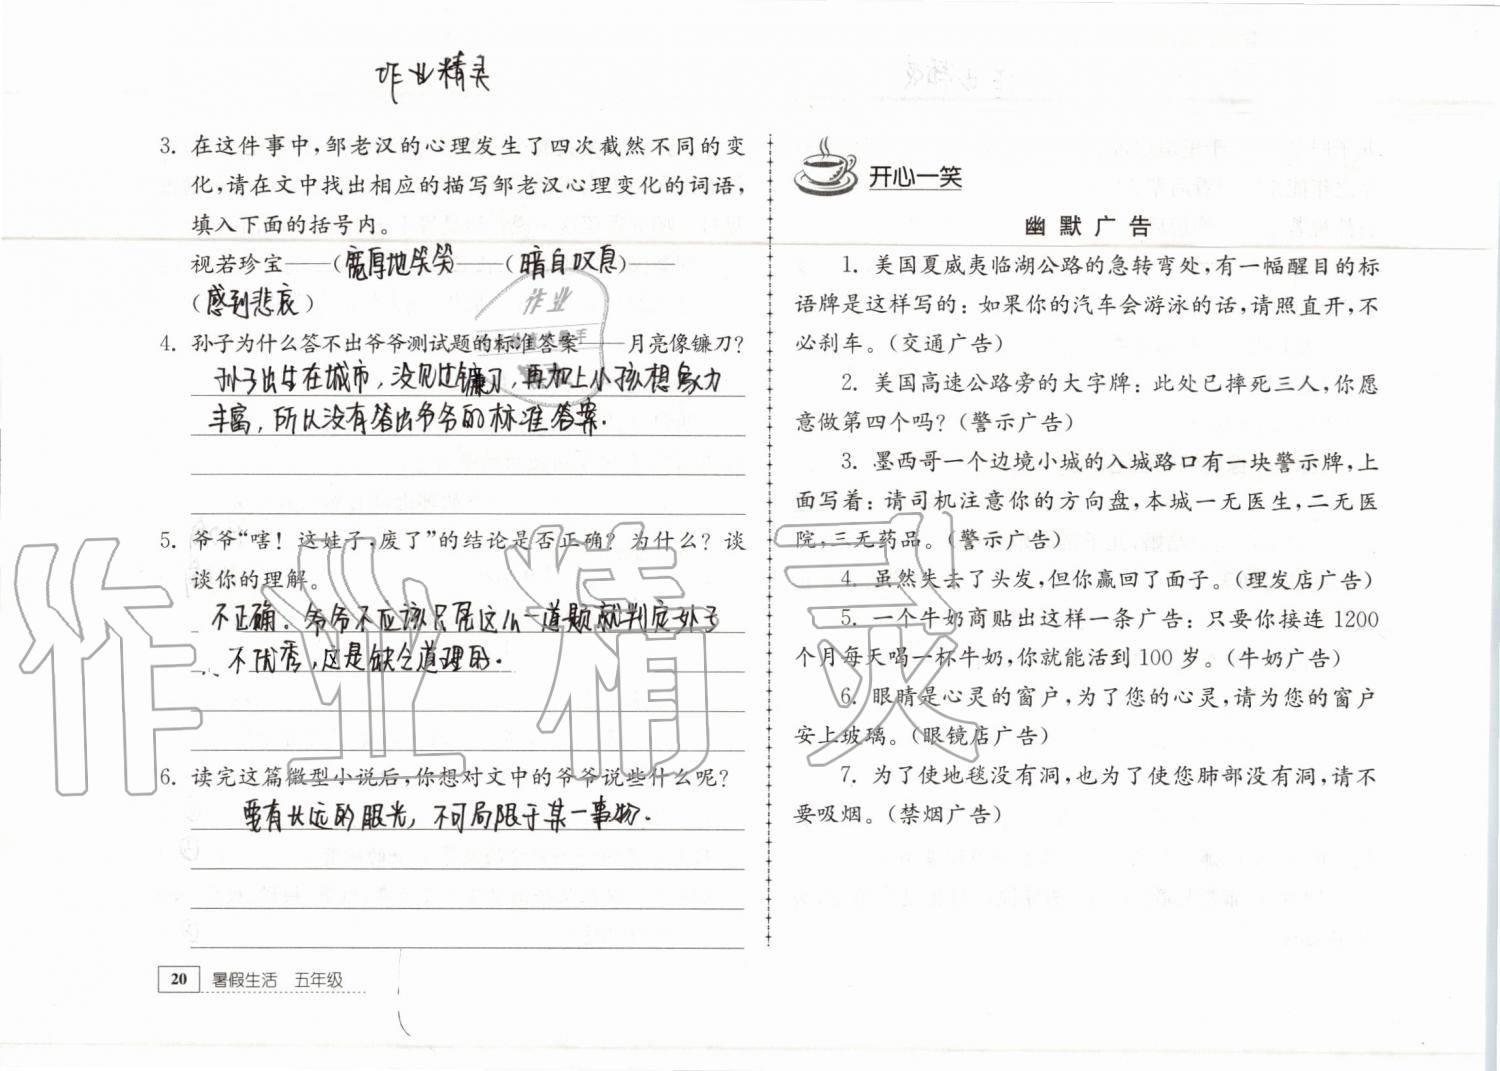 作业精灵
3. 在这件事中,邹老汉的心理发生了四次截然不同的变
化,请在文中找出相应的描写邹老汉心理变化的词语,
填入下面的括号内。
视若珍宝——(宽厚地笑笑)——(暗自叹息)——
(感到悲哀)
作业
4. 孙子为什么答不出爷爷测试题的标准答案——月亮像镰刀?
孙子出生在城市,没见过镰刀,再加上小孩想象力
丰富,所以没有答出爷爷的标准答案.
5. 爷爷“嗐!这娃子,废了”的结论是否正确?为什么?谈
谈你的理解。
不正确。爷爷不应该只凭这么一道题就判定孙子
不优秀,这是缺乏道理的.
6. 读完这篇微型小说后,你想对文中的爷爷说些什么呢?
要有长远的眼光,不可局限于某一事物.
20 暑假生活 五年级
开心一笑
幽默广告
1. 美国夏威夷临湖公路的急转弯处,有一幅醒目的标
语牌是这样写的:如果你的汽车会游泳的话,请照直开,不
必刹车。(交通广告)
2. 美国高速公路旁的大字牌:此处已摔死三人,你愿
意做第四个吗?(警示广告)
3. 墨西哥一个边境小城的入城路口有一块警示牌,上
面写着:请司机注意你的方向盘,本城一无医生,二无医
院,三无药品。(警示广告)
4. 虽然失去了头发,但你赢回了面子。(理发店广告)
5. 一个牛奶商贴出这样一条广告:只要你接连 1200
个月每天喝一杯牛奶,你就能活到 100 岁。(牛奶广告)
6. 眼睛是心灵的窗户,为了您的心灵,请为您的窗户
安上玻璃。(眼镜店广告)
7. 为了使地毯没有洞,也为了使您肺部没有洞,请不
要吸烟。(禁烟广告)
作业精灵